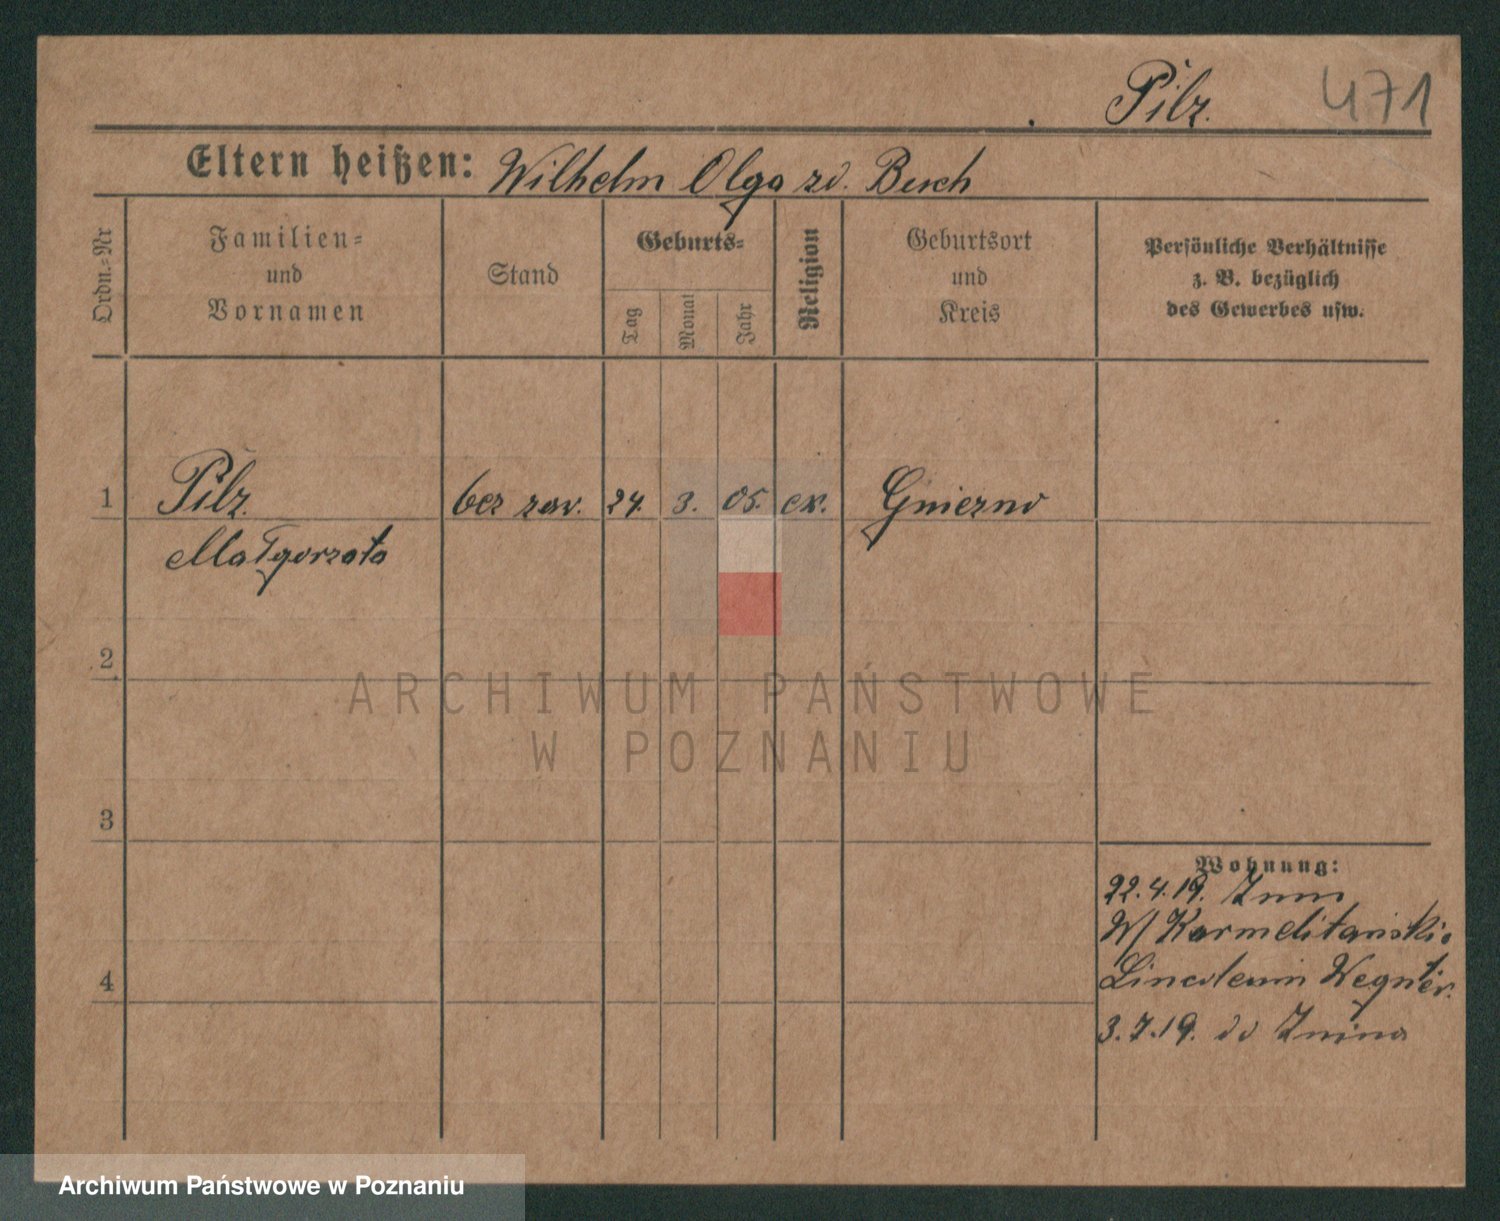 Pilz. 471
Eltern heißen: Wilhelm Olga zd. Busch
Ordn.=Nr
Familien=
und
Vornamen
Stand
Geburts=
Tag
Monat
Jahr
Religion
Geburtsort
und
Kreis
Persönliche Verhältnisse
z. B. bezüglich
des Gewerbes usw.
1 Pilz. bez zaw. 24. 3. 05. ew. Gniezno
Małgorzata
2
3
4
Wohnung:
22.4.19. Znin
W/ Karmelitański.
Wegner.
3.7.19. do Znina
ARCHIWUM PAŃSTWOWE
W POZNANIU
Archiwum Państwowe w Poznaniu